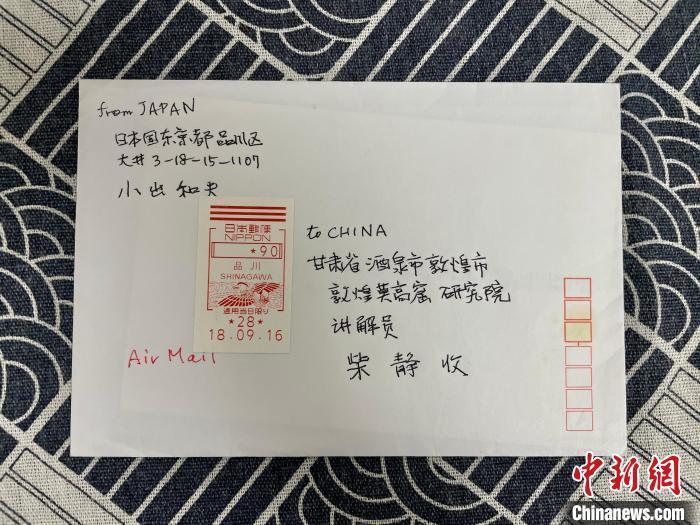 from JAPAN
日本国东京都品川区
大井 3-18-15-1107
小出 知史
日本郵便
NIPPON
*90
品川
SHINAGAWA
適用当日限り
*28*
18.09.16
Air Mail
to CHINA
甘肃省酒泉市敦煌市
敦煌莫高窟 研究院
讲解员
柴 静 收
中新网
Chinanews.com